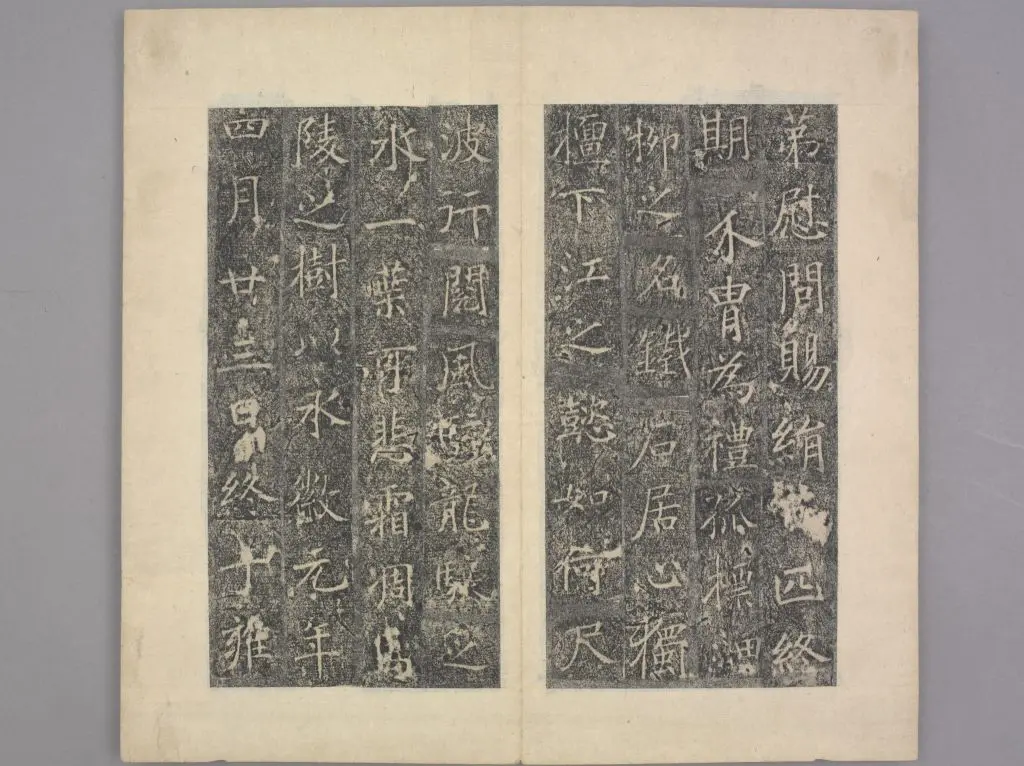 苐慰問賜絹 匹終
期 不胄為禮孫標
柳之名鐵石居心獨
檀下江之懿如何尺
波行閱風 龍驟之
水一葉可悲霜凋馬
陵之樹以永徽元年
四月廿三日終于雍